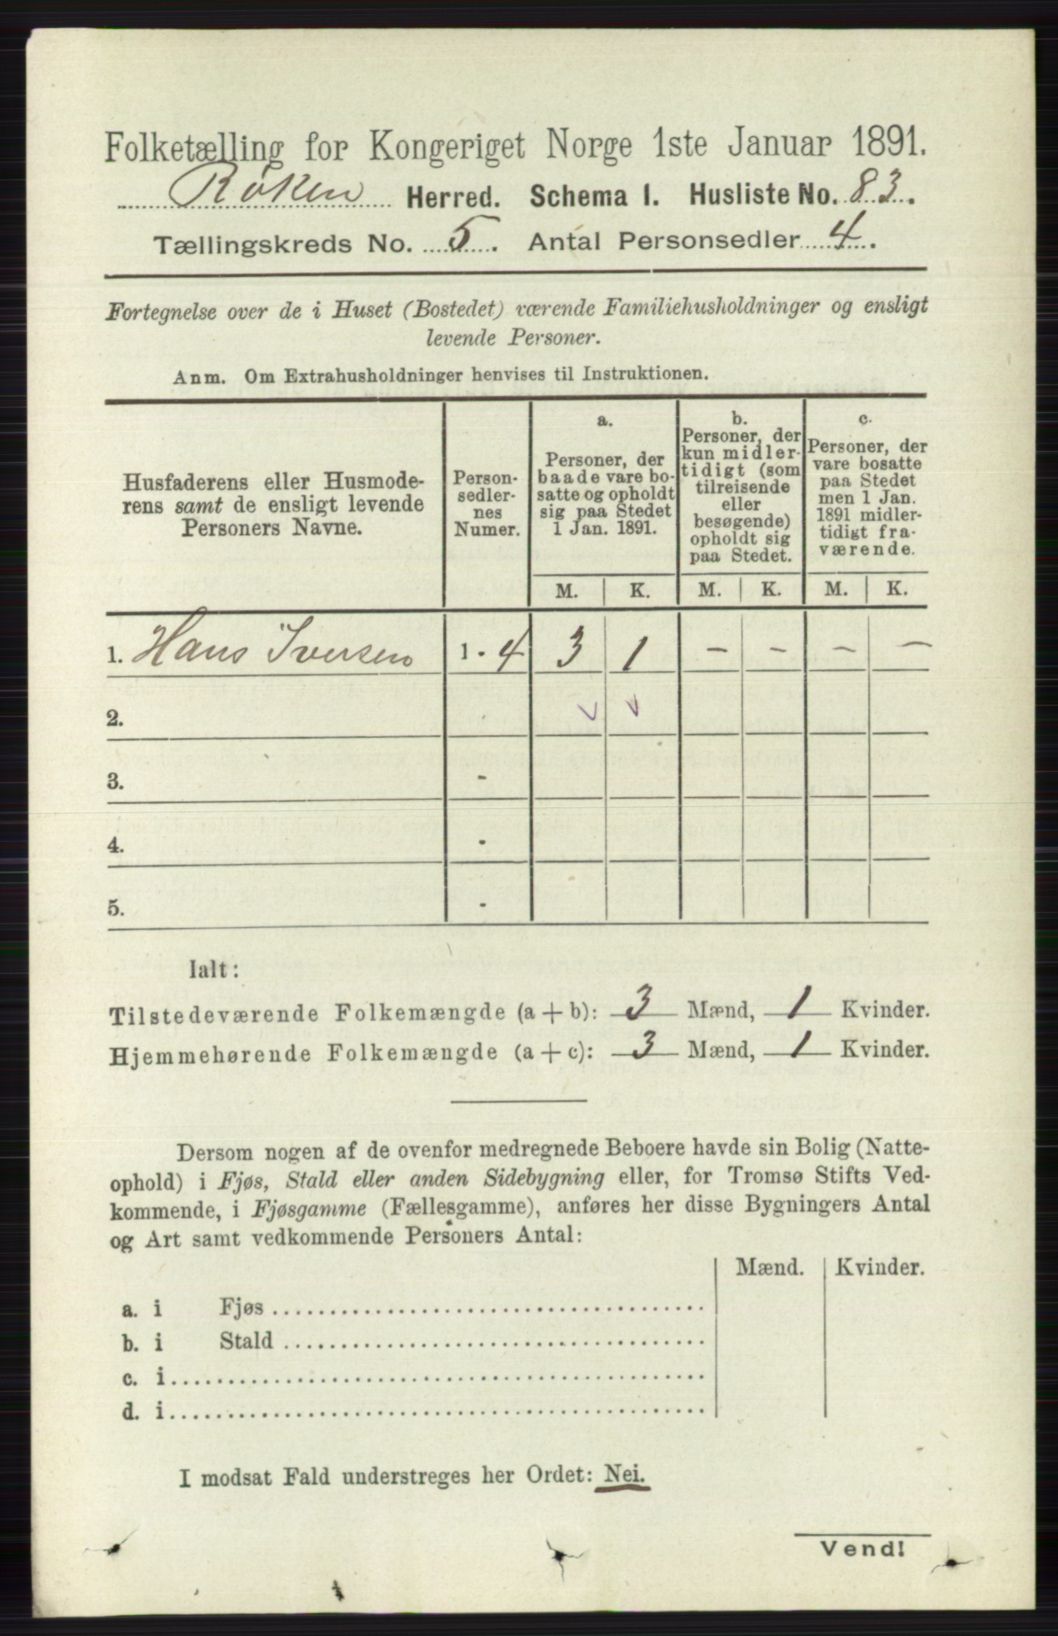 Folketælling for Kongeriget Norge 1ste Januar 1891.
Røken Herred. Schema I. Husliste No. 83.
Tællingskreds No. 5. Antal Personsedler 4.
Fortegnelse over de i Huset (Bostedet) værende Familiehusholdninger og ensligt
levende Personer.
Anm. Om Extrahusholdninger henvises til Instruktionen.
Husfaderens eller Husmode-
rens samt de ensligt levende
Personers Navne.
Person-
sedler-
nes
Numer.
a.
Personer, der
baade vare bo-
satte og opholdt
sig paa Stedet
1 Jan. 1891.
b.
Personer, der
kun midler-
tidigt (som
tilreisende
eller
besøgende)
opholdt sig
paa Stedet.
c.
Personer, der
vare bosatte
paa Stedet
men 1 Jan.
1891 midler-
tidigt fra-
værende.
M. K. M. K. M. K.
1. Hans Iversen 1 - 4 3 1 - - - -
2.
3. -
4. -
5. -
Ialt:
Tilstedeværende Folkemængde (a + b): 3 Mænd, 1 Kvinder.
Hjemmehørende Folkemængde (a + c): 3 Mænd, 1 Kvinder.
Dersom nogen af de ovenfor medregnede Beboere havde sin Bolig (Natte-
ophold) i Fjøs, Stald eller anden Sidebygning eller, for Tromsø Stifts Ved-
kommende, i Fjøsgamme (Fællesgamme), anføres her disse Bygningers Antal
og Art samt vedkommende Personers Antal:
Mænd. Kvinder.
a. i Fjøs
b. i Stald
c. i
d. i
I modsat Fald understreges her Ordet: Nei.
Vend!